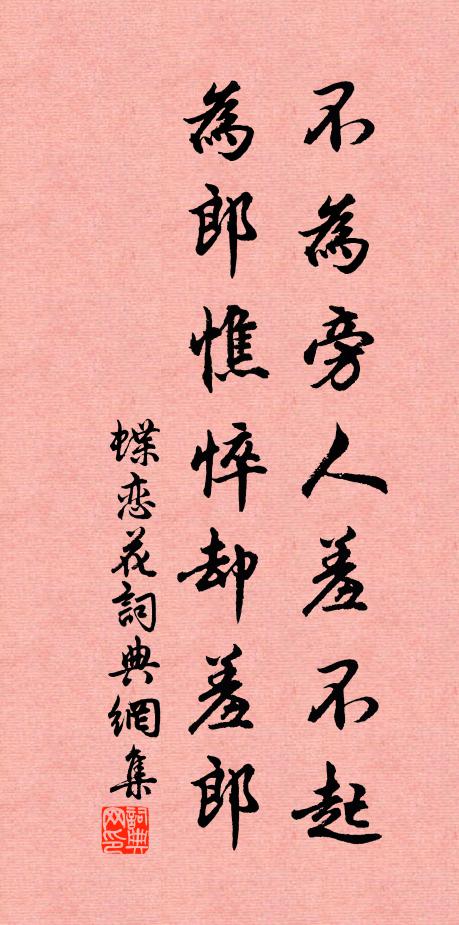 不為旁人羞不起
為郎憔悴却羞郎
蝶恋花詞典網集
詞典网印